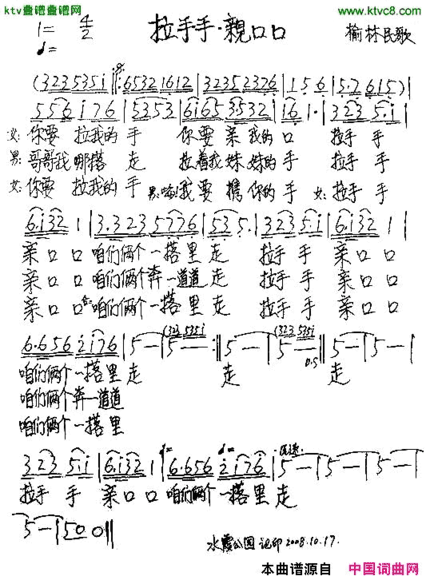 ktv曲谱曲谱网
www.ktvc8.com
1= 4/2
拉手手·親口口
榆林民歌
(3235351 65321612 | 32352376 | 1 5 6 | 5·7615)
556176 | 5353 | 61653532 | 161· | 32351
女:你要 拉我的 手 你要 亲我的 口 拉手 手
男:哥哥我 哪搭 走 拉着我妹妹的 手 拉手 手
女:你要 拉我的 手 我要 携你的 手 女:拉手 手
6·1321 | 3.3235776 | 535· | 32351 | 6·1321
亲口口 咱们俩个 一搭里 走 拉手手 亲口口
亲口口 咱们俩个奔一道道 走 拉手手 亲口口
亲口口 咱们俩个 一搭里 走 拉手手 亲口口
6·6562176 | 5— | 5— | 5— | 5— | 5— | 5— |
咱们俩个 一搭里 走 走 走
咱们俩个奔一道道
咱们俩个 一搭里
32351 | 6·1321 | 6·6562176 | 5— | 5— | 5—
拉手 手 亲口口 咱们俩个 一搭里 走
5— | 500
水霞公园 记印 2008.10.17.
本曲谱源自 中国词曲网